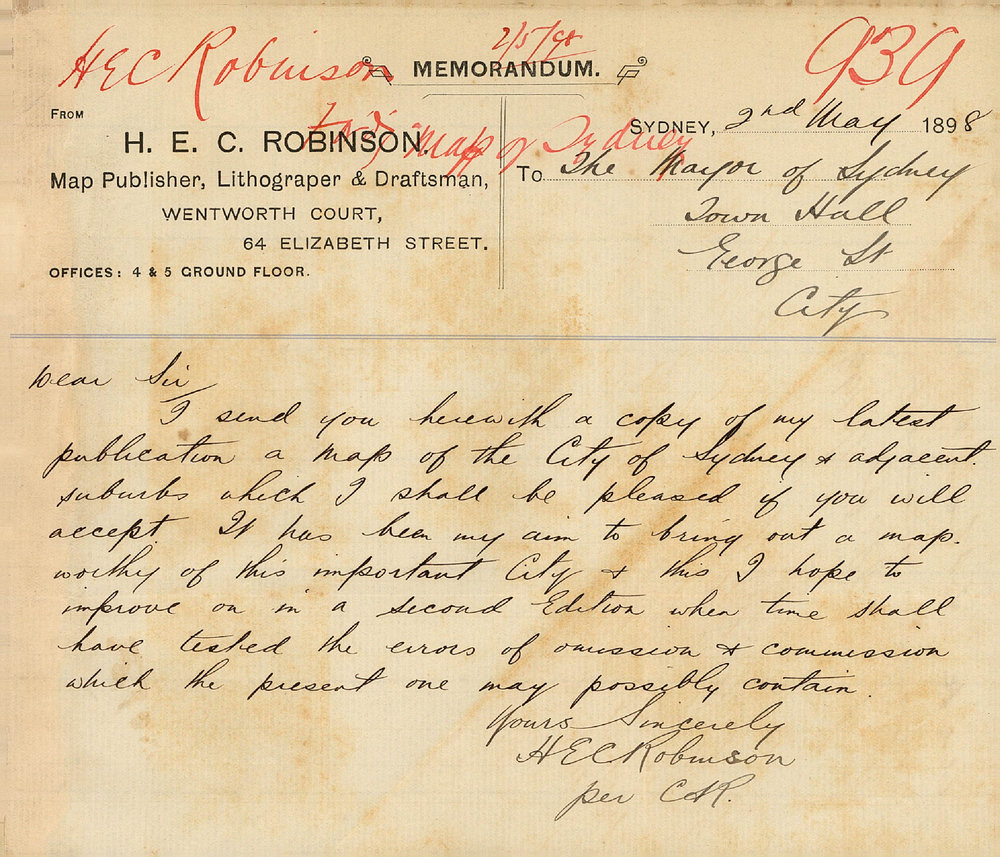 2/5/98
HEC Robinson
939
MEMORANDUM.
Map of Sydney
FROM
H. E. C. ROBINSON.
Map Publisher, Lithograper & Draftsman,
WENTWORTH COURT,
64 ELIZABETH STREET.
OFFICES: 4 & 5 GROUND FLOOR.
SYDNEY, 2nd May 1898
To The Mayor of Sydney
Town Hall
George St
City
Dear Sir
I send you herewith a copy of my latest
publication a map of the City of Sydney & adjacent
suburbs which I shall be pleased if you will
accept. It has been my aim to bring out a map.
worthy of this important City & this I hope to
improve on in a second Edition when time shall
have tested the errors of omission & commission
which the present one may possibly contain.
Yours Sincerely
HEC Robinson
per